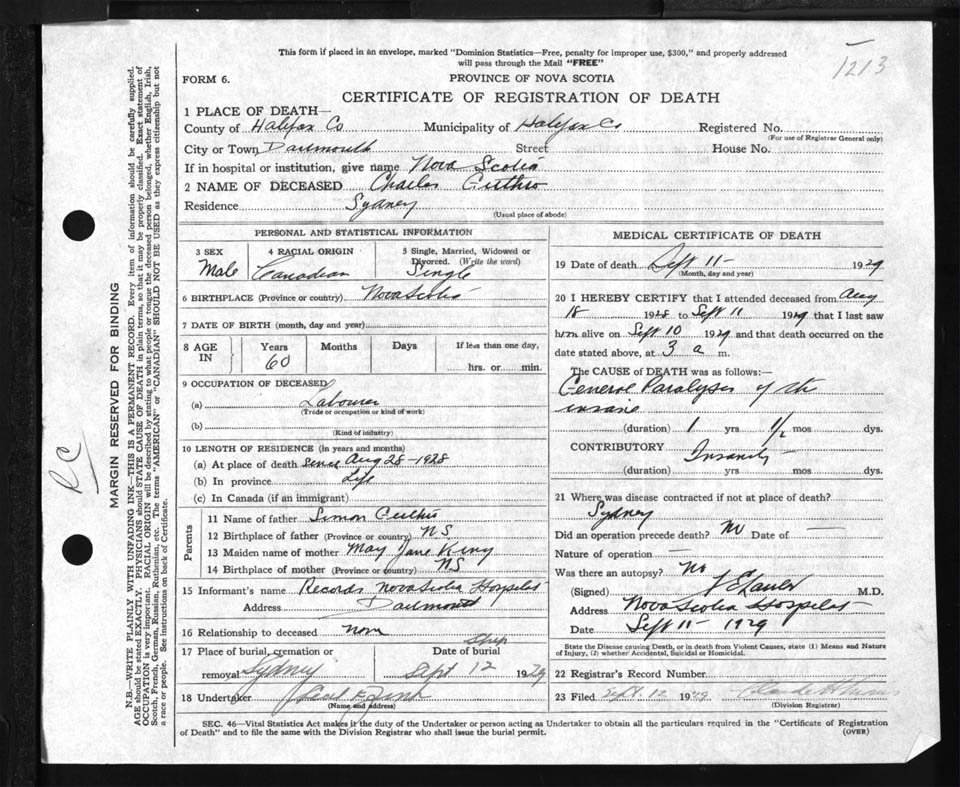 This form if placed in an envelope, marked "Dominion Statistics—Free, penalty for improper use, $300," and properly addressed
will pass through the Mail "FREE"
1213
FORM 6.
PROVINCE OF NOVA SCOTIA
CERTIFICATE OF REGISTRATION OF DEATH
1 PLACE OF DEATH—
County of Halifax Co Municipality of Halifax Co Registered No.
(For use of Registrar General only)
City or Town Dartmouth Street House No.
If in hospital or institution, give name Nova Scotia
2 NAME OF DECEASED Charles
Residence Sydney
(Usual place of abode)
PERSONAL AND STATISTICAL INFORMATION
3 SEX 4 RACIAL ORIGIN 5 Single, Married, Widowed or
Divorced. (Write the word)
Male Canadian Single
6 BIRTHPLACE (Province or country) Nova Scotia
7 DATE OF BIRTH (month, day and year)
8 AGE IN Years Months Days If less than one day,
60 hrs. or min.
9 OCCUPATION OF DECEASED
(a) Labourer
(Trade or occupation or kind of work)
(b)
(Kind of industry)
10 LENGTH OF RESIDENCE (in years and months)
(a) At place of death Since Aug 28-1928
(b) In province Life
(c) In Canada (if an immigrant)
Parents
11 Name of father Simon
12 Birthplace of father (Province or country) NS
13 Maiden name of mother May Jane King
14 Birthplace of mother (Province or country) NS
15 Informant's name Records Nova Scotia Hospital
Address Dartmouth
16 Relationship to deceased none
17 Place of burial, cremation or Date of burial
Ship
removal Sydney Sept 12 1929
18 Undertaker
(Name and address)
MEDICAL CERTIFICATE OF DEATH
19 Date of death Sept 11- 1929
(Month, day and year)
20 I HEREBY CERTIFY that I attended deceased from Aug
18 1928 to Sept 11 1929 that I last saw
him alive on Sept 10 1929 and that death occurred on the
date stated above, at 3 a m.
The CAUSE of DEATH was as follows:—
General Paralyses of the
insane
(duration) 1 yrs 1/2 mos dys.
CONTRIBUTORY Insanity
(duration) yrs mos dys.
21 Where was disease contracted if not at place of death?
Sydney
Did an operation precede death? No Date of —
Nature of operation —
Was there an autopsy? No
(Signed) M.D.
Address Nova Scotia Hospital
Date Sept 11- 1929
State the Disease causing Death, or in death from Violent Causes, state (1) Means and Nature
of Injury, (2) whether Accidental, Suicidal or Homicidal.
22 Registrar's Record Number
23 Filed Sept 12 1929
(Division Registrar)
SEC. 46—Vital Statistics Act makes it the duty of the Undertaker or person acting as Undertaker to obtain all the particulars required in the "Certificate of Registration
of Death" and to file the same with the Division Registrar who shall issue the burial permit.
(OVER)
RC
MARGIN RESERVED FOR BINDING
N.B.—WRITE PLAINLY WITH UNFADING INK—THIS IS A PERMANENT RECORD. Every item of information should be carefully supplied.
AGE should be stated EXACTLY. PHYSICIANS should STATE CAUSE OF DEATH in plain terms, so that it may be properly classified. Exact statement of
OCCUPATION is very important. RACIAL ORIGIN will be described by stating to what people or tongue the deceased person belonged, whether English, Irish,
Scotch, French, German, Russian, Ruthenian, etc. The terms "AMERICAN" or "CANADIAN" SHOULD NOT BE USED as they express citizenship but not
a race or people. See instructions on back of Certificate.